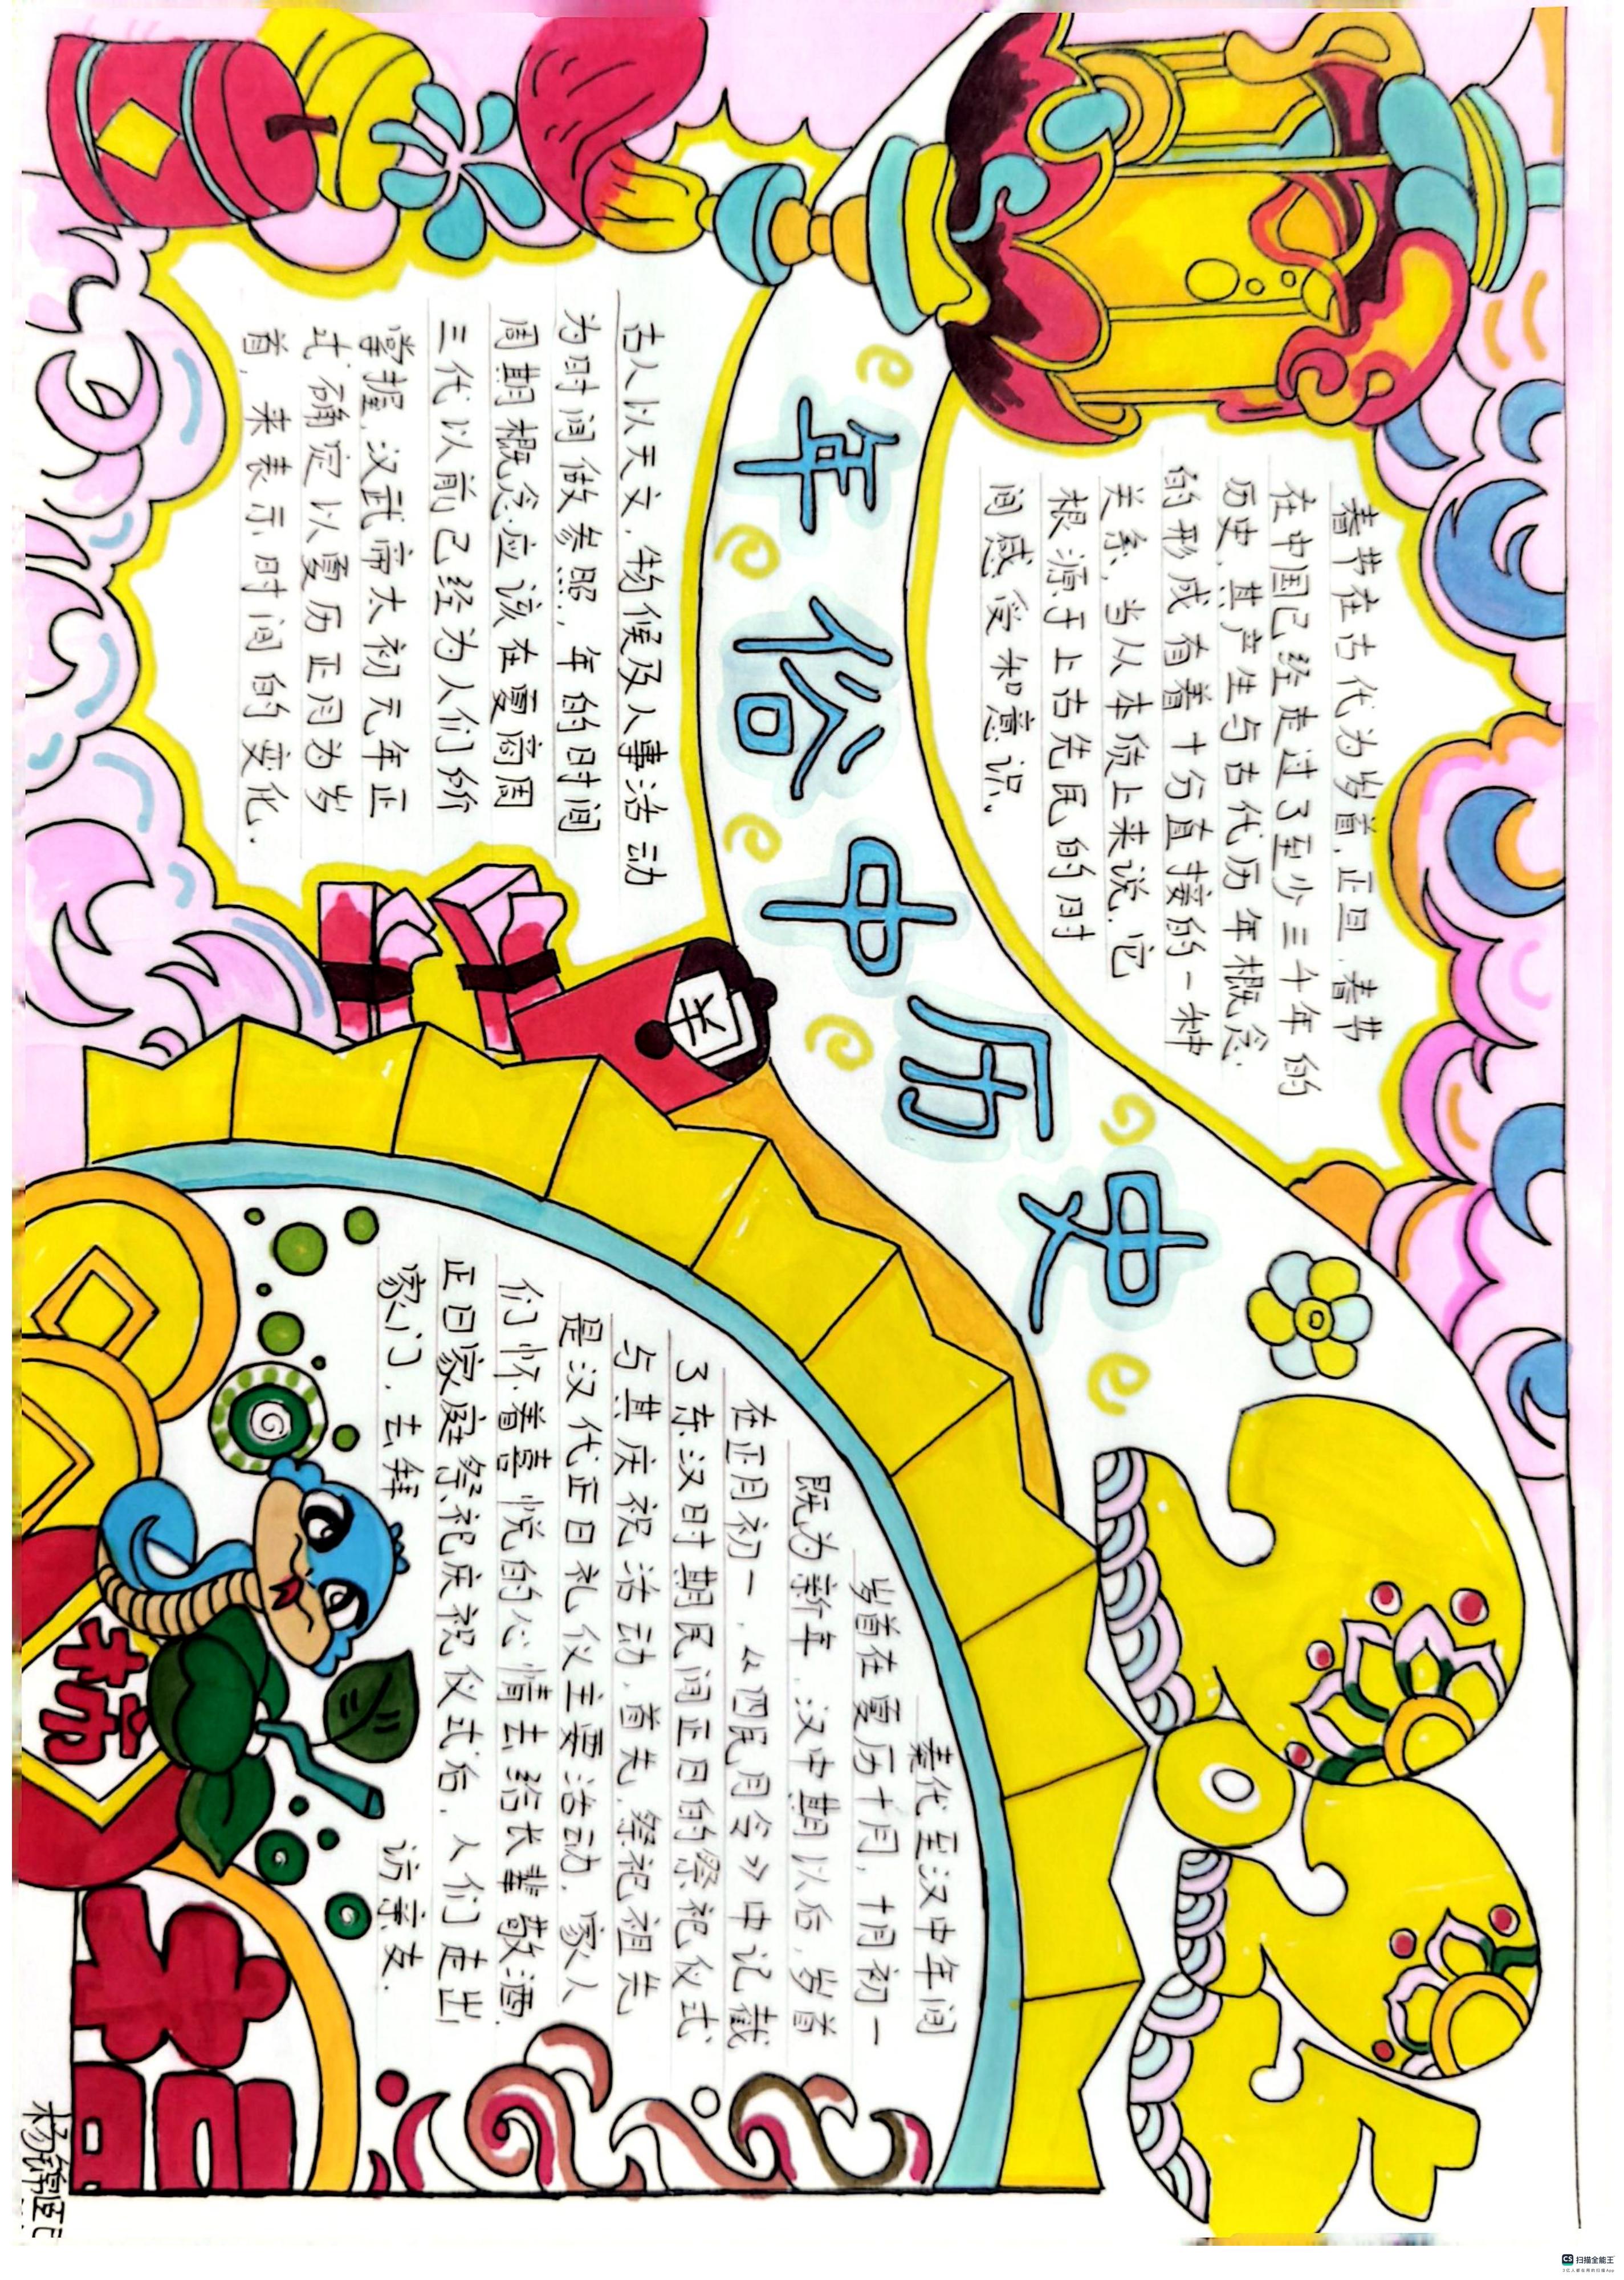 2025
年俗中历史
春节在古代为岁首,正旦,春节
在中国已经走过了至少三千年的
历史,其产生与古代历年概念
的形成有着十分直接的一种
关系,当从本质上来说,它
根源于上古先民的时
间感受和意识。
古人以天文,物候及人事活动
为时间做参照,年的时间
周期概念应该在夏商周
三代以前已经为人们所
掌握,汉武帝太初元年正
式确定以夏历正月为岁
首,来表示时间的变化.
秦代至汉中年间
岁首在夏历十月,十月初一
既为新年,汉中期以后,岁首
在正月初一,《四民月令》中记载
了东汉时期民间正日的祭祀仪式
与其庆祝活动,首先,祭祀祖先
是汉代正日礼仪主要活动,家人
们怀着喜悦的心情去给长辈敬酒.
正日家庭祭祀庆祝仪式后,人们走出
家门,去拜 访亲友.
扫描全能王
3亿人都在用的扫描App